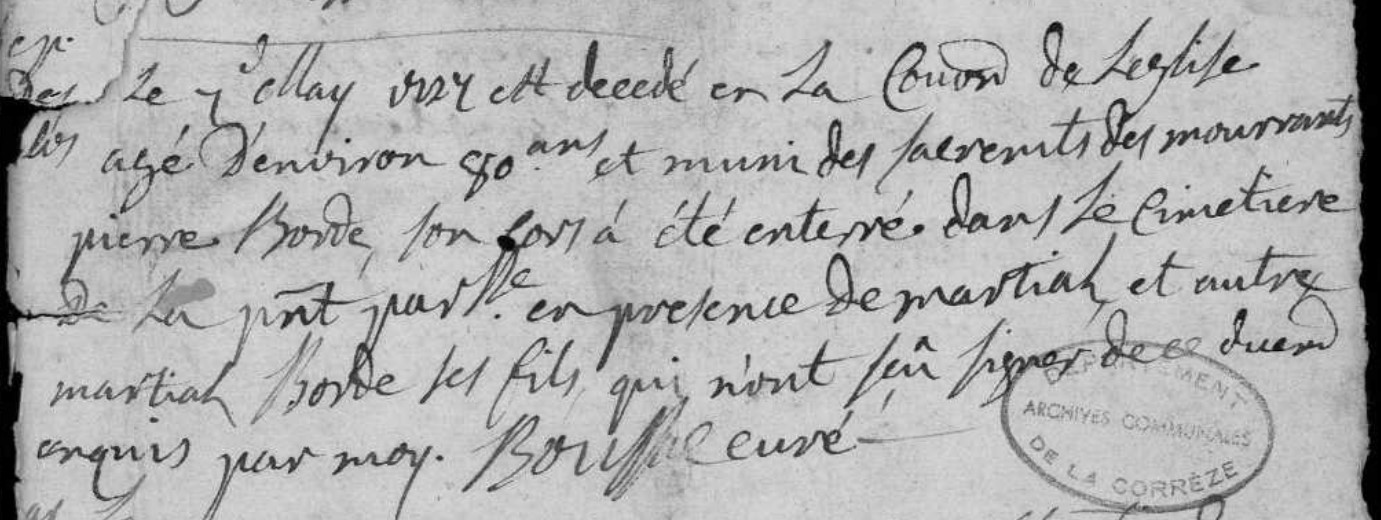 Le 7 May 1727 est decedé en La Cour de Leglise
agé D'environ 80 ans et muni des sacremts des mourrants
pierre Borde, son cors á été enterré dans Le Cimetiere
De La pñt parsse. en presence De martial, et autre
martial Borde ses fils, qui n'ont seû signer de ce duem
enquis par moy. curé
DEPARTEMENT
ARCHIVES COMMUNALES
DE LA CORRÈZE